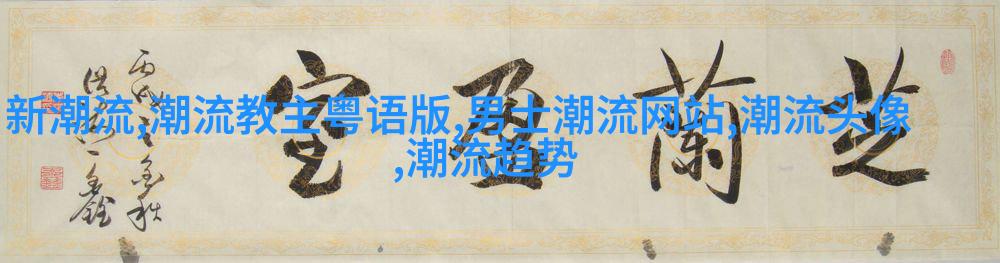 新潮流,潮流教主粤语版,男士潮流网站,潮流头像
,潮流趋势
芝蘭盈室